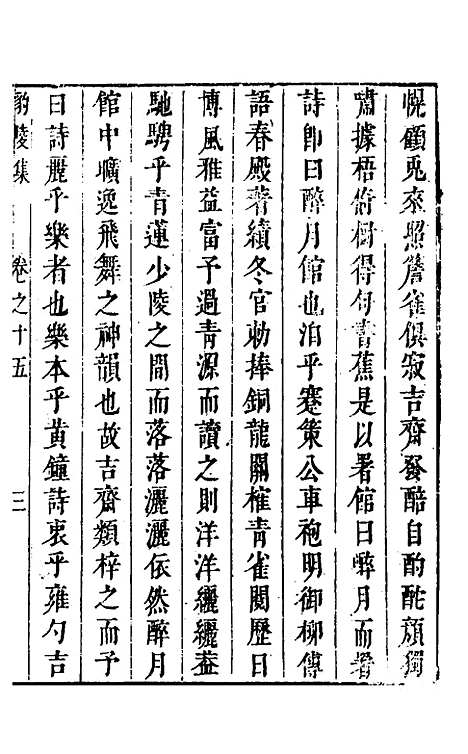 幌顧兎來照簷雀俱寂吉齋發醅自酌酡顏獨
嘯據梧俯樹得句書蕉是以署館曰醉月而署
詩卽曰醉月館也洎乎蹇策公車袍明御柳傳
語春殿著績冬官勅捧銅龍關榷青雀閱歷日
博風雅益富予過青源而讀之則洋洋纚纚葢
馳騁乎青蓮少陵之間而落落灑灑依然醉月
館中曠逸飛舞之神韻也故吉齋類梓之而予
曰詩麗乎樂者也樂本乎黃鐘詩衷乎雍勺吉
豹陵集 卷之十五 三